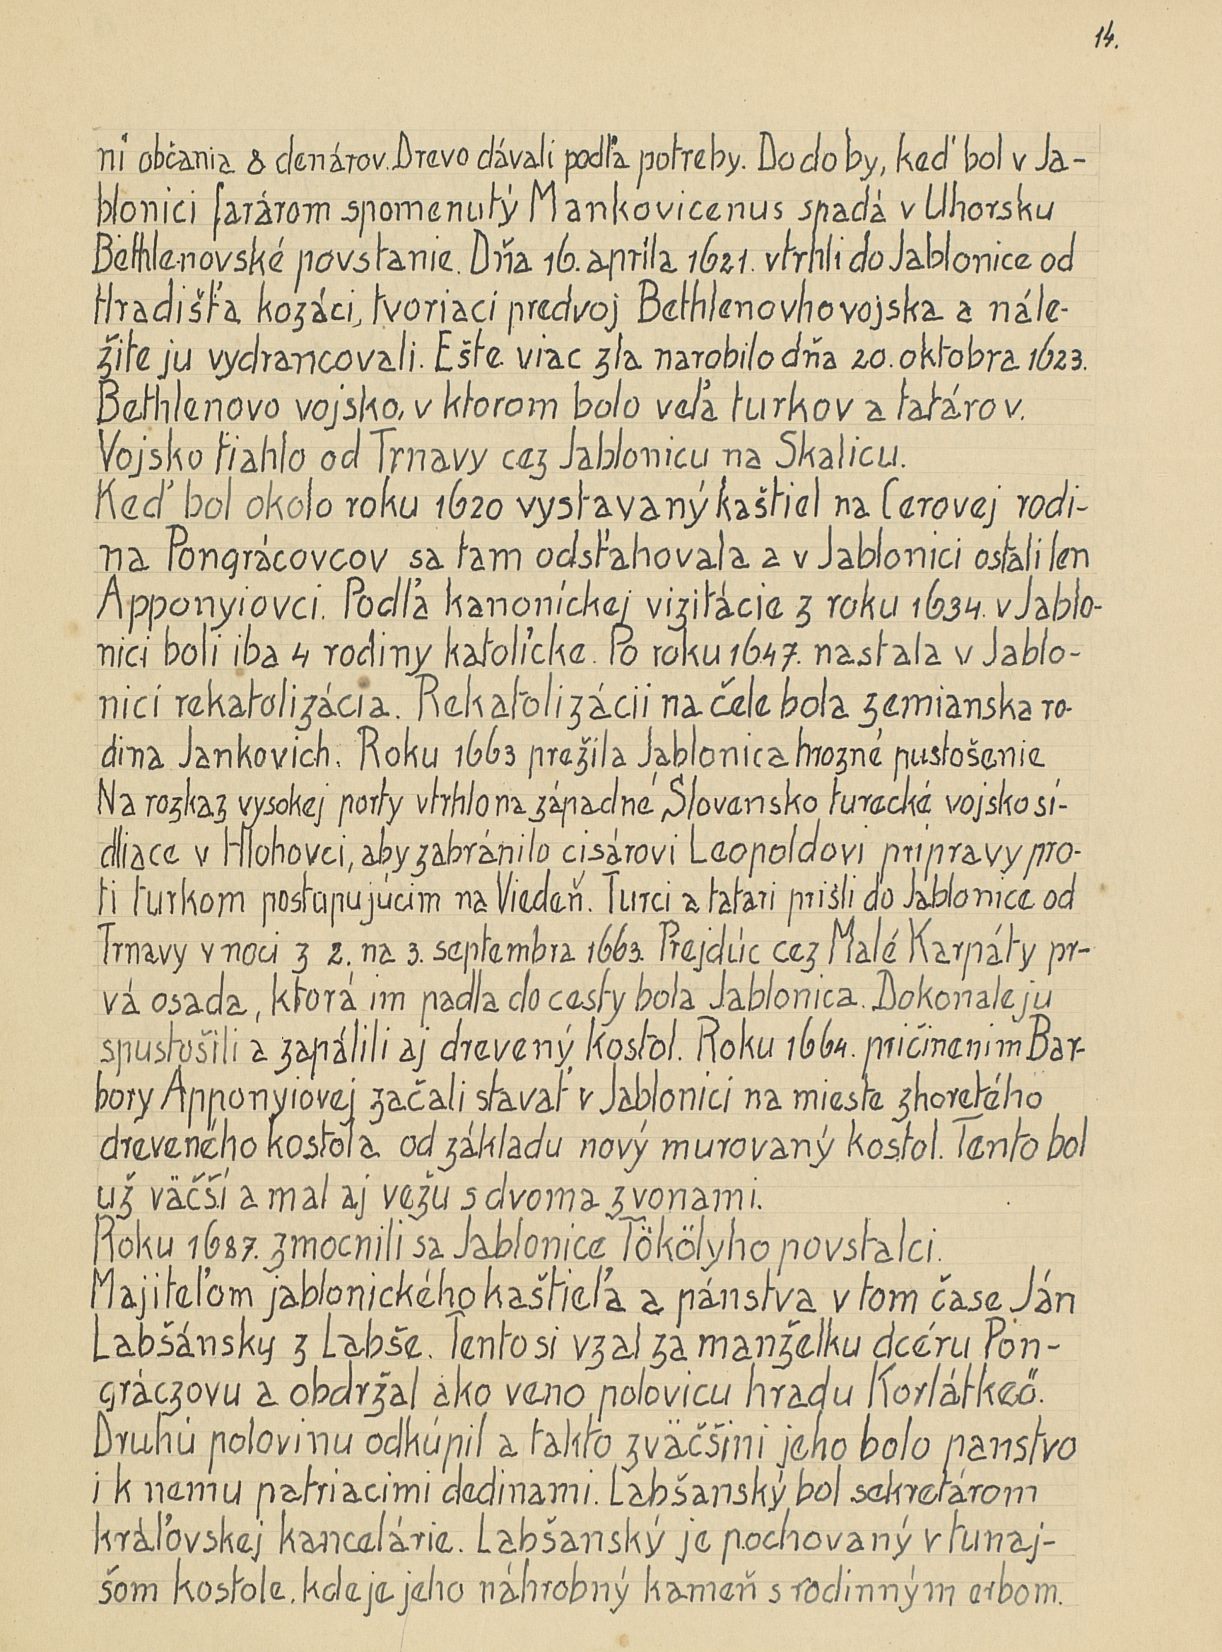 14.
ní občania 8 denárov. Drevo dávali podľa potreby. Do doby, keď bol v Ja-
blonici farárom spomenutý Mankovicenus spadá v Uhorsku
Bethlenovské povstanie. Dňa 16. apríla 1621. vtrhli do Jablonice od
Hradišťa kozáci, tvoriaci predvoj Bethlenovho vojska a nále-
žite ju vydrancovali. Ešte viac zla narobilo dňa 20. oktobra 1623.
Bethlenovo vojsko, v ktorom bolo veľa turkov a tatárov.
Vojsko tiahlo od Trnavy cez Jablonicu na Skalicu.
Keď bol okolo roku 1620 vystavaný kaštiel na Cerovej rodi-
na Pongrácovcov sa tam odsťahovala a v Jablonici ostali len
Apponyiovci. Podľa kanoníckej vizitácie z roku 1634. v Jablo-
nici boli iba 4 rodiny katolícke. Po roku 1647. nastala v Jablo-
nici rekatolizácia. Rekatolizácii na čele bola zemianska ro-
dina Jankovich. Roku 1663 prežila Jablonica hrozné pustošenie
Na rozkaz vysokej porty vtrhlo na západné Slovensko turecké vojsko sí-
dliace v Hlohovci, aby zabránilo cisárovi Leopoldovi prípravy pro-
ti turkom postupujúcim na Viedeň. Turci a tatari prišli do Jablonice od
Trnavy v noci z 2. na 3. septembra 1663. Prejdúc cez Malé Karpáty pr-
vá osada, ktorá im padla do cesty bola Jablonica. Dokonale ju
spustošili a zapálili aj drevený kostol. Roku 1664. pričinením Bar-
bory Apponyiovej začali stavať v Jablonici na mieste zhoretého
dreveného kostola od základu nový murovaný kostol. Tento bol
už väčší a mal aj vežu s dvoma zvonami.
Roku 1687. zmocnili sa Jablonice Tökölyho povstalci.
Majiteľom jablonického kaštieľa a pánstva v tom čase Ján
Labšánsky z Labše. Tento si vzal za manželku dcéru Pon-
gráczovu a obdržal ako veno polovicu hradu Korlátkeö.
Druhú polovinu odkúpil a takto zväčšini jeho bolo panstvo
i k nemu patriacimi dedinami. Labšanský bol sekretárom
kráľovskej kancelárie. Labšanský je pochovaný v tunaj-
šom kostole, kde je jeho náhrobný kameň s rodinným erbom.